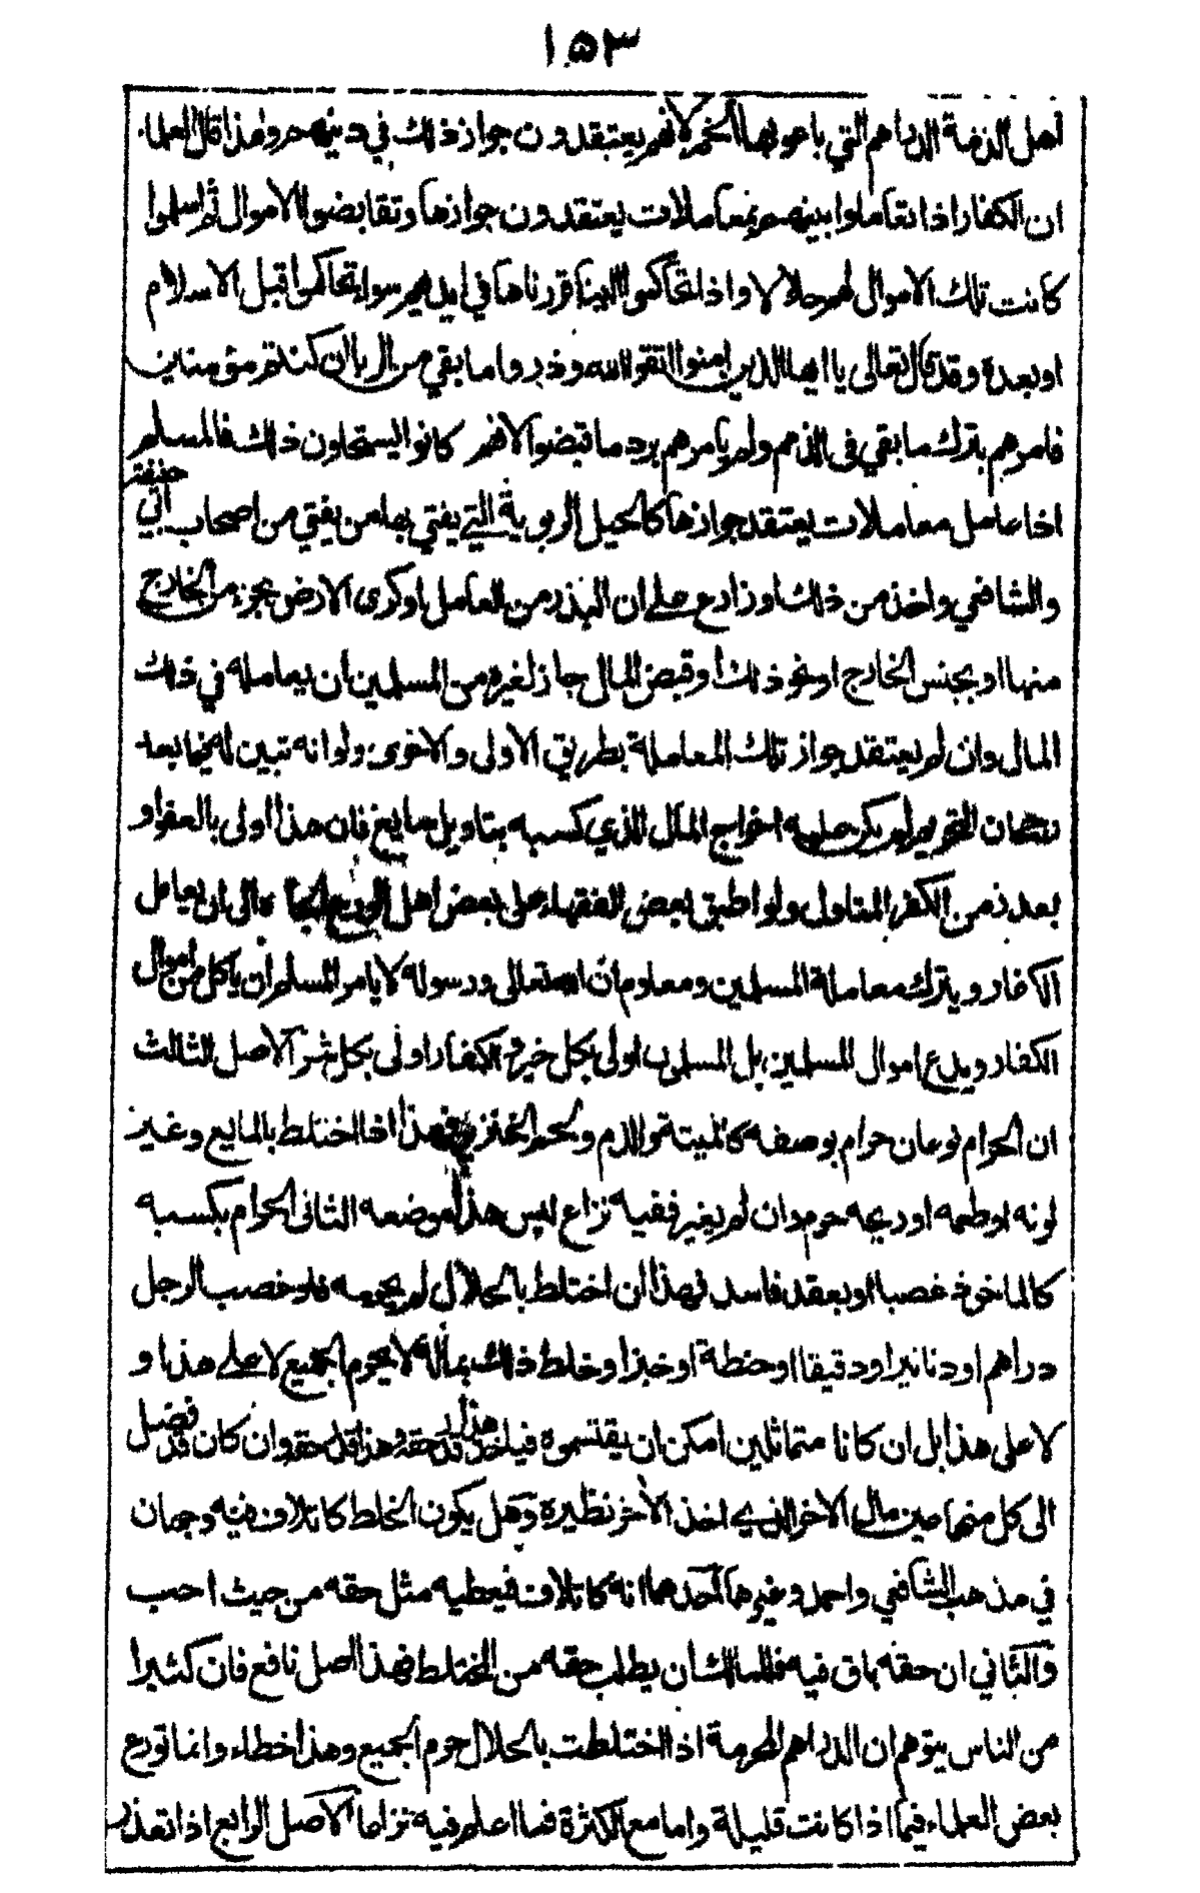 ١٥٣
اهل الذمة الدراهم التي باعوا بها الخمر لانهم يعتقدون جواز ذلك في دينهم ولهذا قال العلماء
ان الكفار اذا تعاملوا بينهم بمعاملات يعتقدون جوازها وتقابضوا الاموال ثم اسلموا
كانت تلك الاموال لهم حلالا واذا تحاكموا الينا قررناها في ايديهم سواء تحاكموا قبل الاسلام
او بعده وقد قال تعالى يا ايها الذين امنوا اتقوا الله وذروا ما بقي من الربا ان كنتم مؤمنين
فامرهم بترك ما بقي في الذمم ولم يامرهم برد ما قبضوا لانهم كانوا يستحلون ذلك فالمسلم
اذا عامل معاملات يعتقد جوازها كالحيل الربوية التي يفتي بها من يفتي من اصحاب ابي حنيفة
والشافعي واخذ من ذلك او زارع على ان البذر من العامل او كرى الارض بجزء من الخارج
منها او بجنس الخارج او نحو ذلك او قبض المال جاز لغيره من المسلمين ان يعامله في ذلك
المال وان لم يعتقد جواز تلك المعاملة بطريق الاولى والاخرى ولو انه تبين له فيما بعد
رجحان التحريم لم يكن عليه اخراج المال الذي كسبه بتاويل سايغ فان هذا اولى بالعفو او
بعد زمن الكفر المتاول ولو اطبق بعض الفقهاء على بعض اهل الورع الجاه الى ان يعامل
الكفار ويترك معاملة المسلمين ومعلوم ان الله تعالى ورسوله لا يامر المسلم ان ياكل من اموال
الكفار ويدع اموال المسلمين بل المسلمون اولى بكل خير والكفار اولى بكل شر الاصل الثالث
ان الحرام نوعان حرام بوصفه كالميتة والدم ولحم الخنزير فهذا اذا اختلط بالمايع وغير
لونه او طعمه او ريحه حرم وان لم يغير ففيه نزاع ليس هذا موضعه الثاني الحرام بكسبه
كالماخوذ غصبا او بعقد فاسد فهذا ان اختلط بالحلال لم يحرمه فلو غصب الرجل
دراهم او دنانير او دقيقا او حنطة او خبزا وخلط ذلك بماله لا يحرم الجميع لا على هذا و
لا على هذا بل ان كانا متماثلين امكن ان يقتسموه فياخذ هذا قدر حقه وهذا قدر حقه وان كان قد فضل
الى كل منهما عين مال الاخر الذي اخذ الاخر نظيره وهل يكون الخلط كاتلاف فيه وجهان
في مذهب الشافعي واحمد وغيرهما احدهما انه كاتلاف فيعطيه مثل حقه من حيث احب
والثاني ان حقه باق فيه فللمالك ان يطلب حقه من المختلط فهذا اصل نافع فان كثيرا
من الناس يتوهم ان الدراهم المحرمة اذا اختلطت بالحلال حرم الجميع وهذا خطاء وانما تورع
بعض العلماء فيما اذا كانت قليلة واما مع الكثرة فما اعلم فيه نزاعا الاصل الرابع اذا تعذر